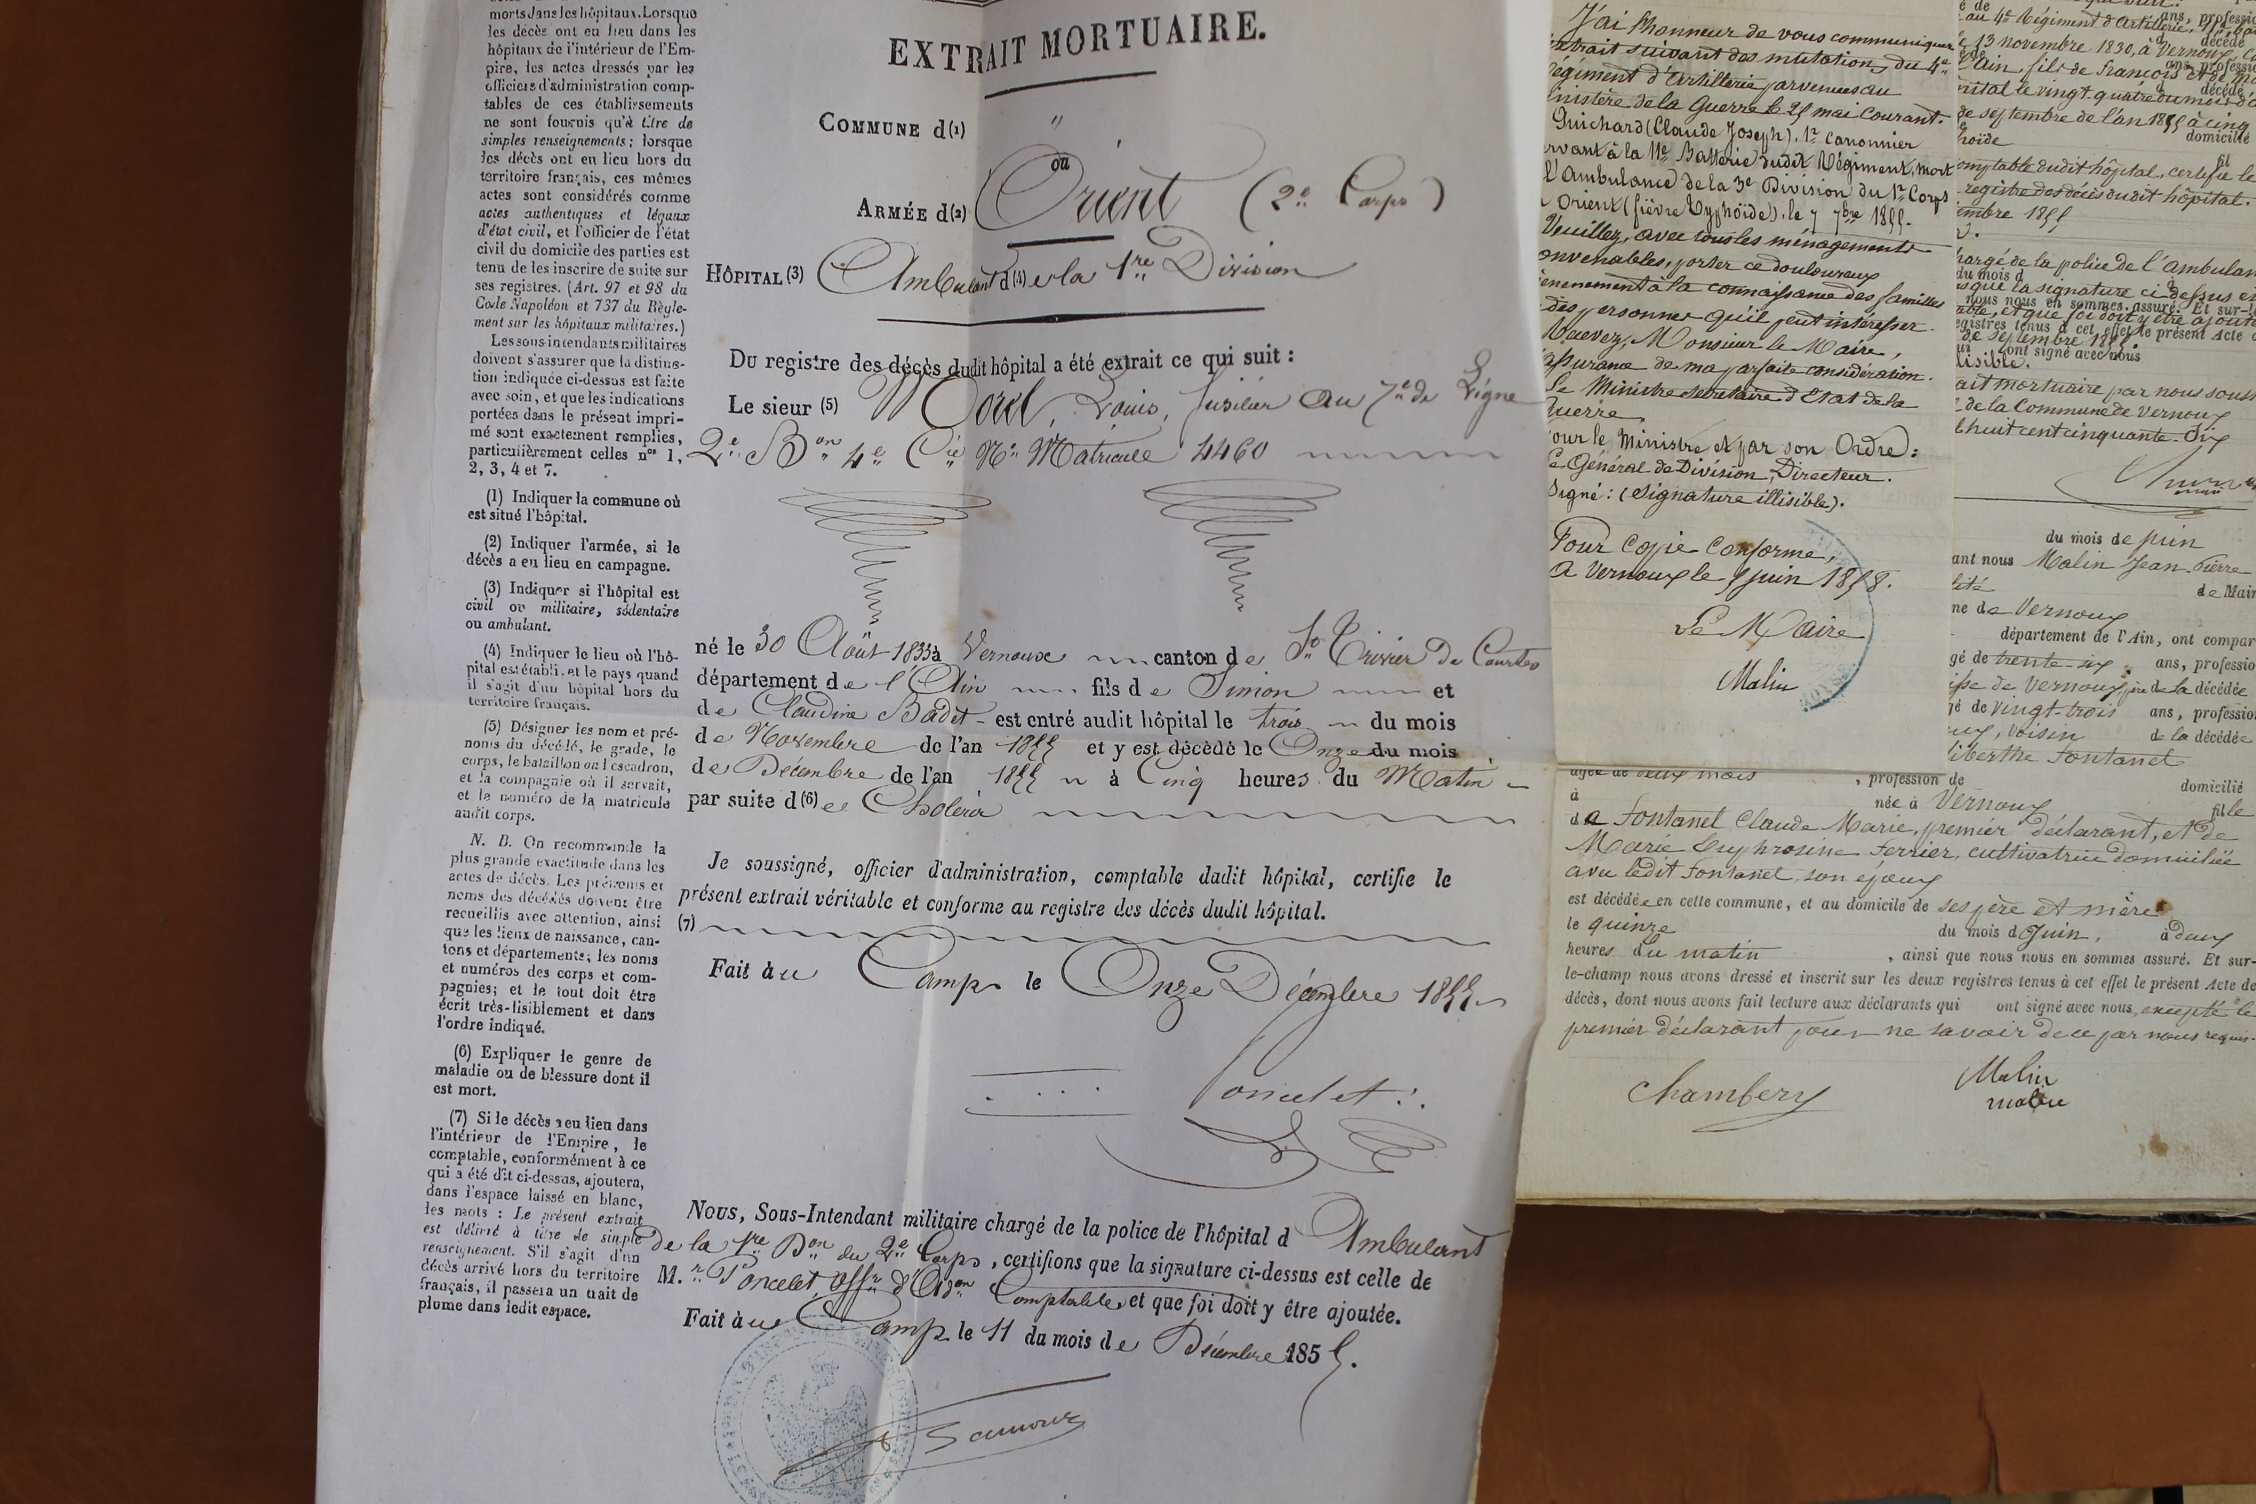 morts dans les hôpitaux. Lorsque
les décès ont eu lieu dans les
hôpitaux de l'intérieur de l'Em-
pire, les actes dressés par les
officiers d'administration comp-
tables de ces établissements
ne sont fournis qu'à titre de
simples renseignements; lorsque
les décès ont eu lieu hors du
territoire français, ces mêmes
actes sont considérés comme
actes authentiques et légaux
d'état civil, et l'officier de l'état
civil du domicile des parties est
tenu de les inscrire de suite sur
ses registres. (Art. 97 et 98 du
Code Napoléon et 737 du Règle-
ment sur les hôpitaux militaires.)
Les sous-intendants militaires
doivent s'assurer que la distinc-
tion indiquée ci-dessus est faite
avec soin, et que les indications
portées dans le présent impri-
mé sont exactement remplies,
particulièrement celles nos 1,
2, 3, 4 et 7.
(1) Indiquer la commune où
est situé l'hôpital.
(2) Indiquer l'armée, si le
décès a eu lieu en campagne.
(3) Indiquer si l'hôpital est
civil ou militaire, sédentaire
ou ambulant.
(4) Indiquer le lieu où l'hô-
pital est établi, et le pays quand
il s'agit d'un hôpital hors du
territoire français.
(5) Désigner les nom et pré-
noms du décédé, le grade, le
corps, le bataillon ou l'escadron,
et la compagnie où il servait,
et le numéro de la matricule
audit corps.
N. B. On recommande la
plus grande exactitude dans les
actes de décès. Les prénoms et
noms des décédés doivent être
recueillis avec attention, ainsi
que les lieux de naissance, can-
tons et départements; les noms
et numéros des corps et com-
pagnies; et le tout doit être
écrit très-lisiblement et dans
l'ordre indiqué.
(6) Expliquer le genre de
maladie ou de blessure dont il
est mort.
(7) Si le décès a eu lieu dans
l'intérieur de l'Empire, le
comptable, conformément à ce
qui a été dit ci-dessus, ajoutera,
dans l'espace laissé en blanc,
les mots : Le présent extrait
est délivré à titre de simple
renseignement. S'il s'agit d'un
décès arrivé hors du territoire
français, il passera un trait de
plume dans ledit espace.
EXTRAIT MORTUAIRE.
COMMUNE d(1) "
ou
ARMÉE d(2) Orient (2e Corps)
HÔPITAL (3) Ambulant d(4)e la 1re Division
Du registre des décès dudit hôpital a été extrait ce qui suit :
Le sieur (5) Morel, Louis, fusilier au 7e de Ligne
2e Bon 4e Cie No Matricule 4460
né le 30 Août 1833 à Vernoux canton de St Trivier de Courtes
département de l'Ain fils de Simion et
de Claudine Badet - est entré audit hôpital le trois du mois
de Novembre de l'an 1855 et y est décédé le Onze du mois
de Décembre de l'an 1855 à Cinq heures du Matin
par suite d(6)e Choléra
Je soussigné, officier d'administration, comptable dudit hôpital, certifie le
présent extrait véritable et conforme au registre des décès dudit hôpital.
(7)
Fait àu Camp le Onze Décembre 1855
Poncelet
Nous, Sous-Intendant militaire chargé de la police de l'hôpital d Ambulant
de la 1re Don du 2e Corps, certifions que la signature ci-dessus est celle de
M.r Poncelet, Offr d'Adon Comptable et que foi doit y être ajoutée.
Fait àu Camp le 11 du mois de Décembre 1855.
J'ai l'honneur de vous communiquer
extrait suivant des mutations du 4e
régiment d'Artillerie parvenues au
ministère de la Guerre le 25 mai Courant.
Guichard (Claude Joseph), 1r canonnier
servant à la 11e Batterie dudit Régiment, mort
l'Ambulance de la 3e Division du 1r Corps
Orient (fièvre typhoïde), le 7 7bre 1855.
Veuillez, avec tous les ménagements
convenables, porter ce douloureux
évènement à la connaissance des familles
des personnes qu'il peut intéresser.
Recevez, Monsieur le Maire,
assurance de ma parfaite considération.
Le Ministre secrétaire d'Etat de la
Guerre
Pour le Ministre et par son Ordre:
Le Général de Division, Directeur.
Signé: (Signature illisible).
Pour Copie Conforme,
A Vernoux le 5 juin 1858.
Le Maire
Malin
au 4e Régiment d'Artillerie,
le 13 novembre 1830, à Vernoux,
l'Ain, fils de François et de
hôpital le vingt-quatre du mois d'
de septembre de l'an 1855 à cinq
domicilié
comptable dudit hôpital, certifie le
registre des décès dudit hôpital.
chargé de la police de l'ambulan
que la signature ci-dessus
nous nous en sommes assuré. Et sur-l
registres tenus à cet effet le présent Acte
de septembre 1855.
ont signé avec nous
lisible.
ait mortuaire par nous
de la Commune de Vernoux
huit cent cinquante-six
du mois de juin
ant nous Malin Jean-Pierre
de Mair
ne de Vernoux
département de l'Ain, ont compar
gé de trente-six ans, professio
de Vernoux, père de la décédée
gé de vingt-trois ans, professio
voisin de la décédée
liberthe Fontanel
âgée de deux mois, profession de domicilié
à née à Vernoux fille
de Fontanel Claude Marie, premier déclarant, et de
Marie Euphrosine Ferrier, cultivatrice domiciliée
avec ledit Fontanel, son époux
est décédée en cette commune, et au domicile de ses père et mère
le quinze du mois de Juin, à deux
heures du matin, ainsi que nous nous en sommes assuré. Et sur-
le-champ nous avons dressé et inscrit sur les deux registres tenus à cet effet le présent Acte de
décès, dont nous avons fait lecture aux déclarants qui ont signé avec nous, excepté le
premier déclarant pour ne savoir de ce par nous requis.
Chambery
Malin
maire